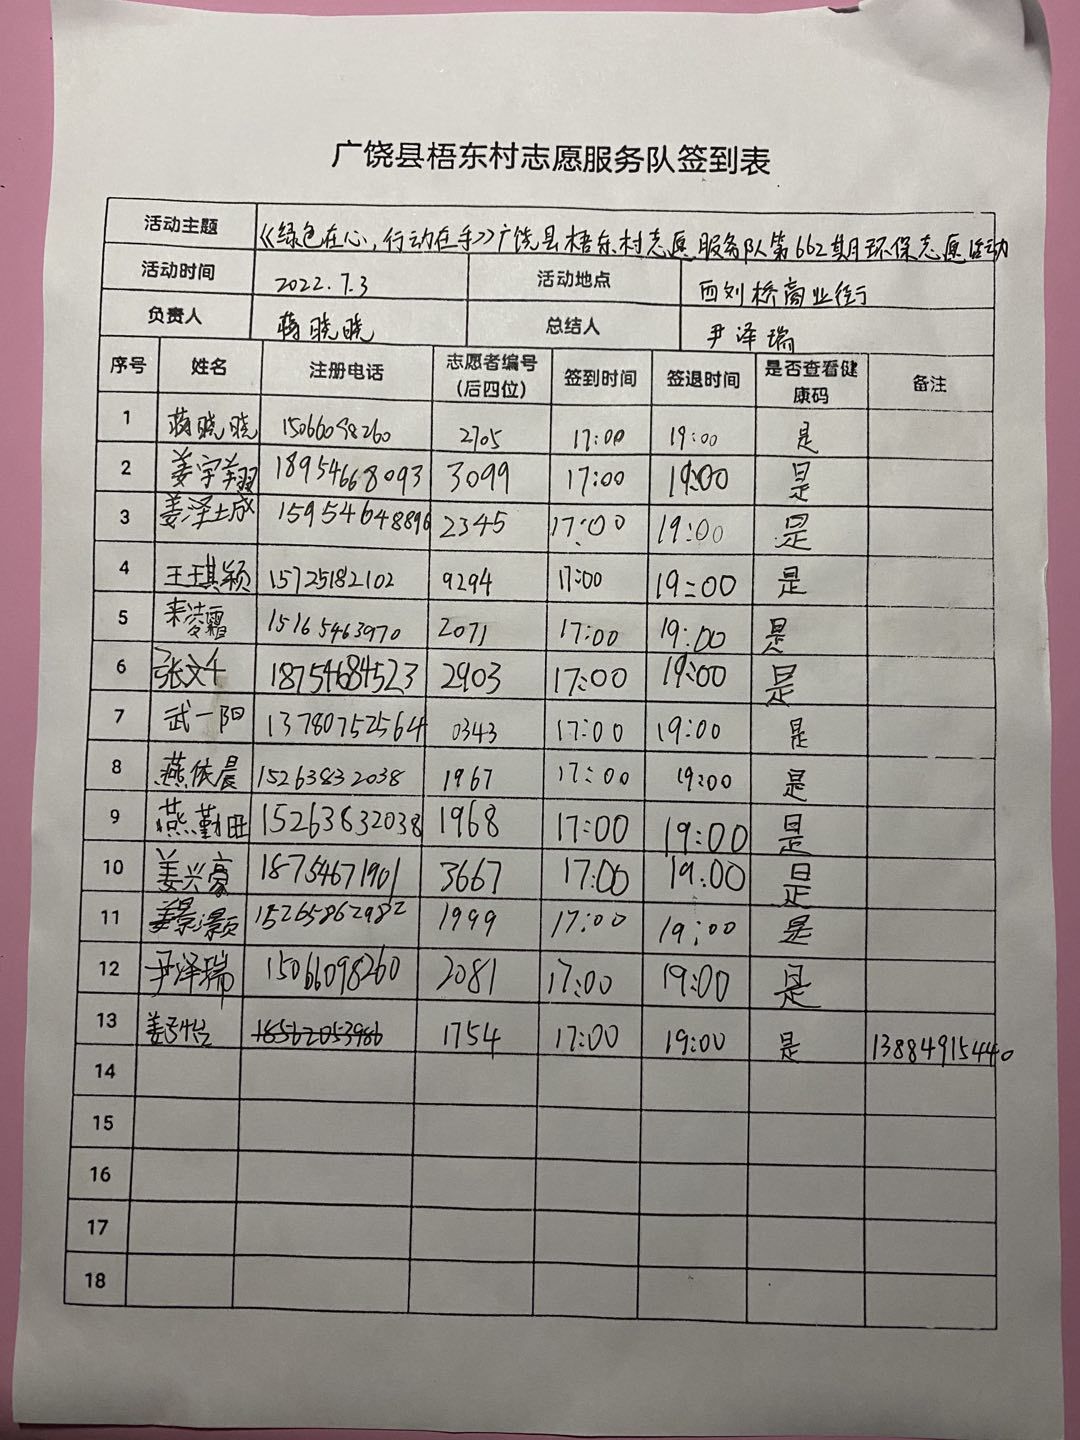 广饶县梧东村志愿服务队签到表
活动主题 《绿色在心，行动在手》广饶县梧东村志愿服务队第662期环保志愿活动
活动时间 2022.7.3 活动地点 西刘桥商业街
负责人 蒋晓晓 总结人 尹泽瑞
序号 姓名 注册电话 志愿者编号（后四位） 签到时间 签退时间 是否查看健康码 备注
1 蒋晓晓 15066098260 2705 17:00 19:00 是
2 姜宇翔 18954668093 3099 17:00 19:00 是
3 姜泽成 15954648896 2345 17:00 19:00 是
4 王琪颖 15725182102 9294 17:00 19:00 是
5 来凌霜 15165463970 2071 17:00 19:00 是
6 张文千 18754684523 2903 17:00 19:00 是
7 武一阳 13780752564 0343 17:00 19:00 是
8 燕依晨 15263832038 1967 17:00 19:00 是
9 燕勤旺 15263832038 1968 17:00 19:00 是
10 姜兴豪 18754671901 3667 17:00 19:00 是
11 姜景灏 15265862982 1999 17:00 19:00 是
12 尹泽瑞 15066098260 2081 17:00 19:00 是
13 姜 18562053986 1754 17:00 19:00 是 13884915440
14
15
16
17
18